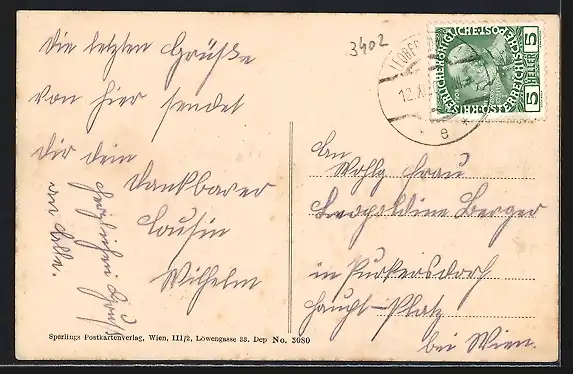 3402
Die letzten Grüße
von hier sendet
Dir dein
dankbarer
Cousin
Wilhelm
herzlichen Gruß
an Alle.
12. XI
* e *
KAISERLICHE KÖNIGLICHE ÖSTERREICHISCHE POST
5 HELLER 5
An
Wohlg. Frau
Leopoldine Berger
in Purkersdorf
Haupt-Platz
bei Wien.
Sperlings Postkartenverlag, Wien, III/2, Löwengasse 33. Dep No. 3080